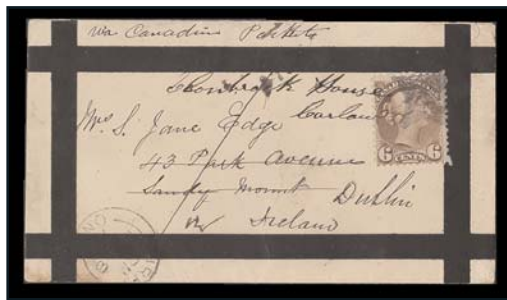 via Canadian Packet
Clonbrock House
Carlow
Mrs. S. Jane Edge
43 Park Avenue
Sandy Mount Dublin
Ireland
6 CENTS 6